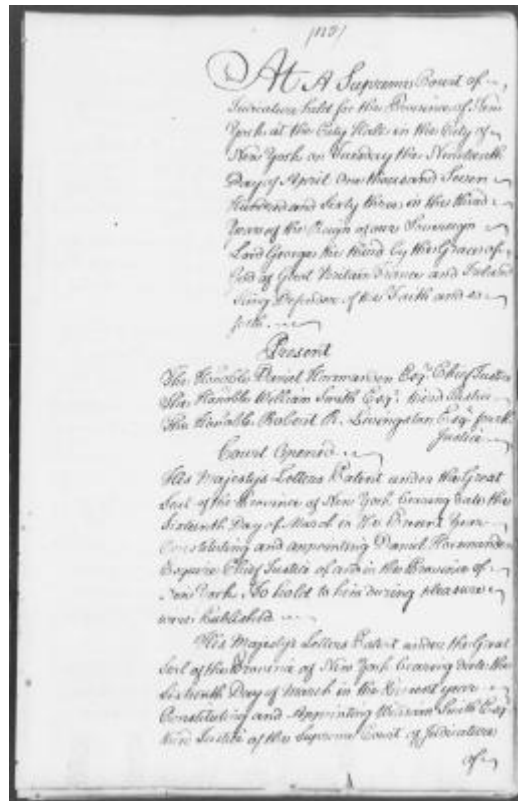 At A Supreme Court of
Judicature held for the Province of New
York at the City Hall in the City of
New York on Tuesday the Nineteenth
Day of April One thousand Seven
Hundred and Sixty three in the third
Year of the Reign of our Sovereign
Lord George the third by the Grace of
God of Great Britain France and Ireland
King Defender of the Faith and so
forth.
Present
The Honoble Daniel Horsmanden Esqr. Chief Justice
The Honoble William Smith Esqr. third Justice
The Honoble Robert R. Livingston Esqr. fourth
Justice
Court Opened
His Majestys Letters Patent under the Great
Seal of the Province of New York bearing date the
Sixteenth Day of March in the Present Year
Constituting and appointing Daniel Horsmanden
Esquire Chief Justice of and in the Province of
New York To hold to him during pleasure
were Published
His Majestys Letters Patent under the Great
Seal of the Province of New York bearing date the
Sixteenth Day of March in the Present year
Constituting and Appointing William Smith Esqr
third Justice of the Supreme Court of Judicature
of